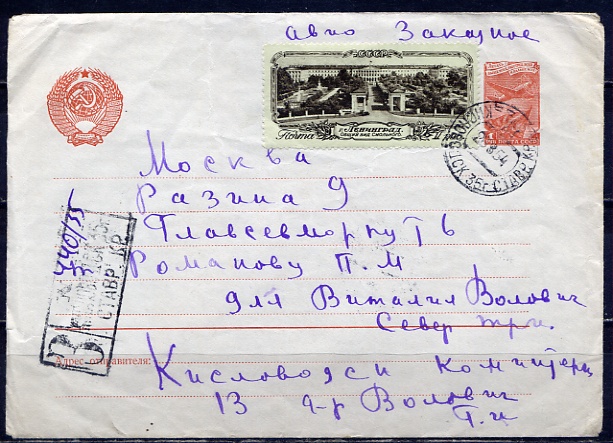 авио Заказное
СССР
Почта
г. Ленинград.
Общий вид Смольного
ПОЧТА СССР
Москва
Разина 9
Главсевморпуть 6
т. Романову П.М
для Виталия Волович
Север
440/35
СТАВР. КР.
З
Адрес отправителя:
Кисловодск
13 д-р Волович